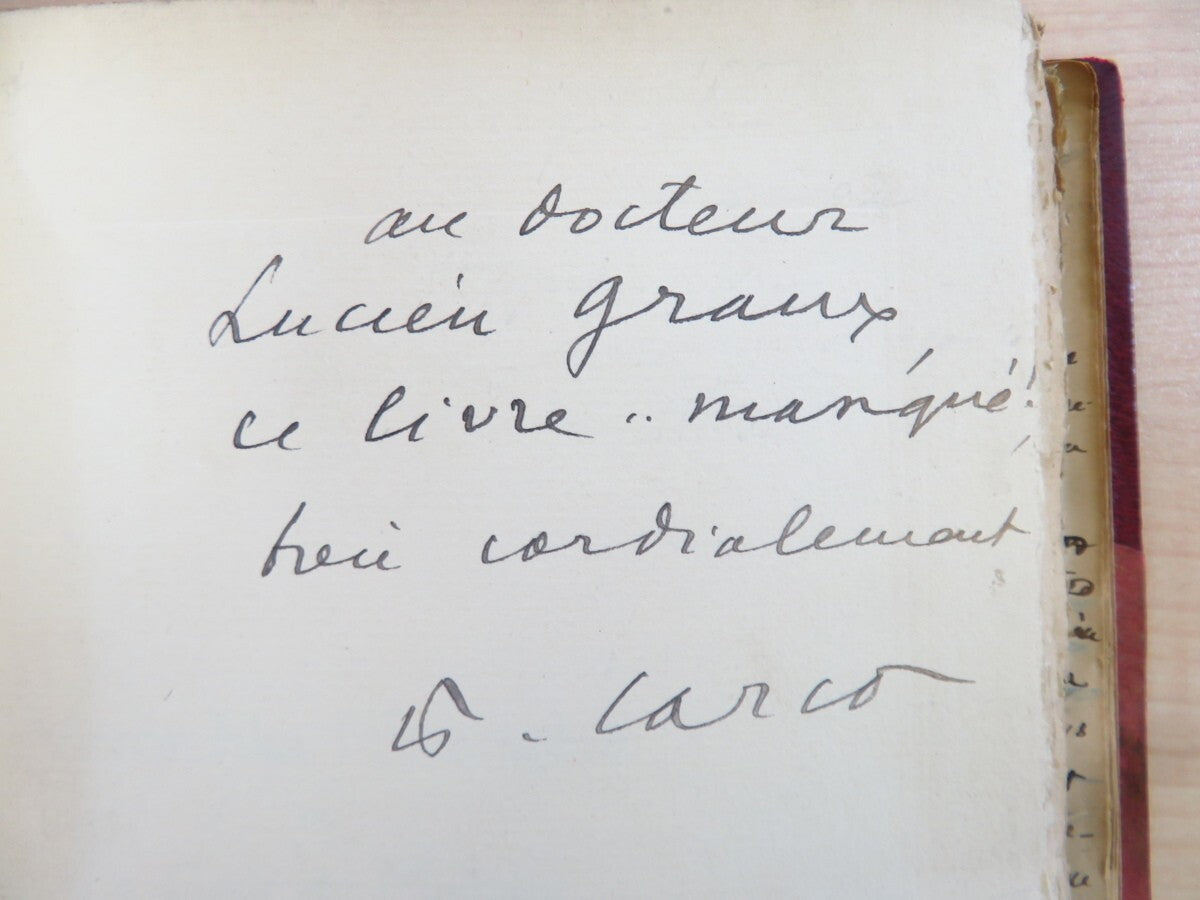 au docteur
Lucien Graux
ce livre .. manqué!
très cordialement
F. Carco